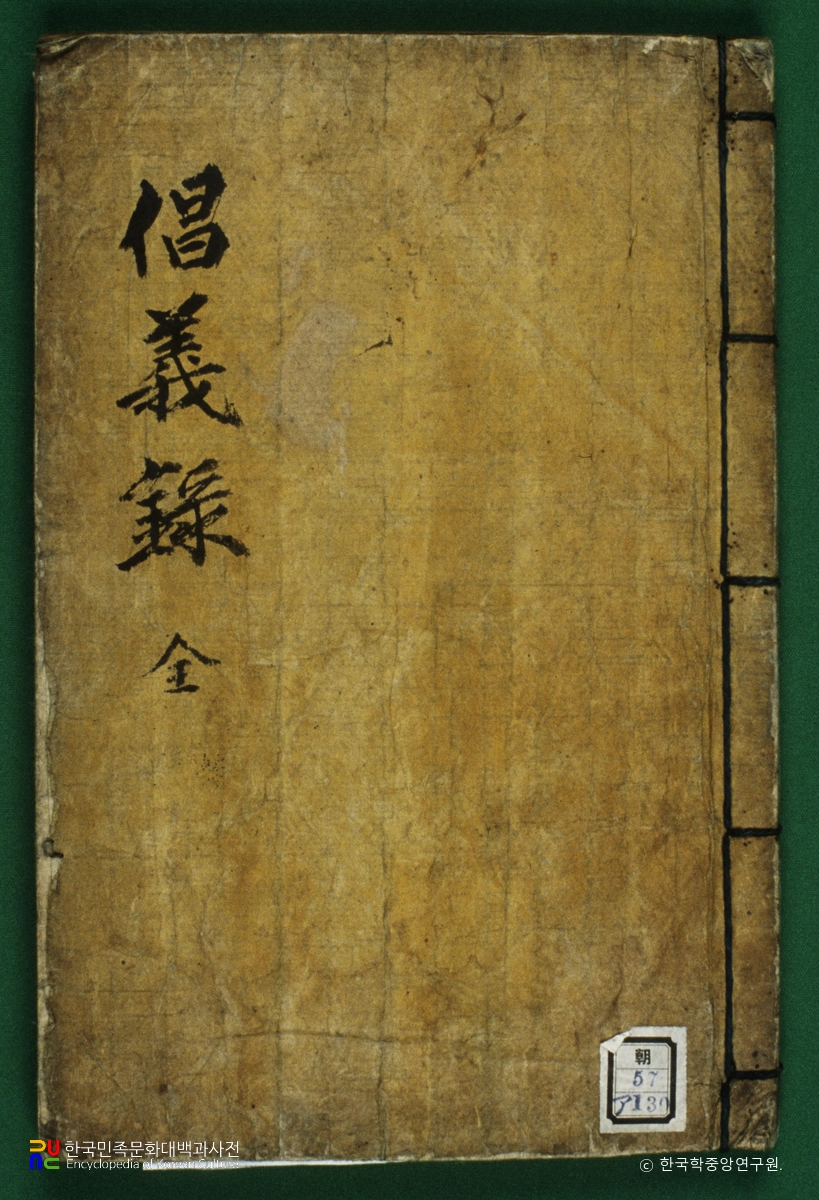 倡義錄 全
朝
57
ア130
한국민족문화대백과사전
Encyclopedia of Korean Culture
ⓒ 한국학중앙연구원.